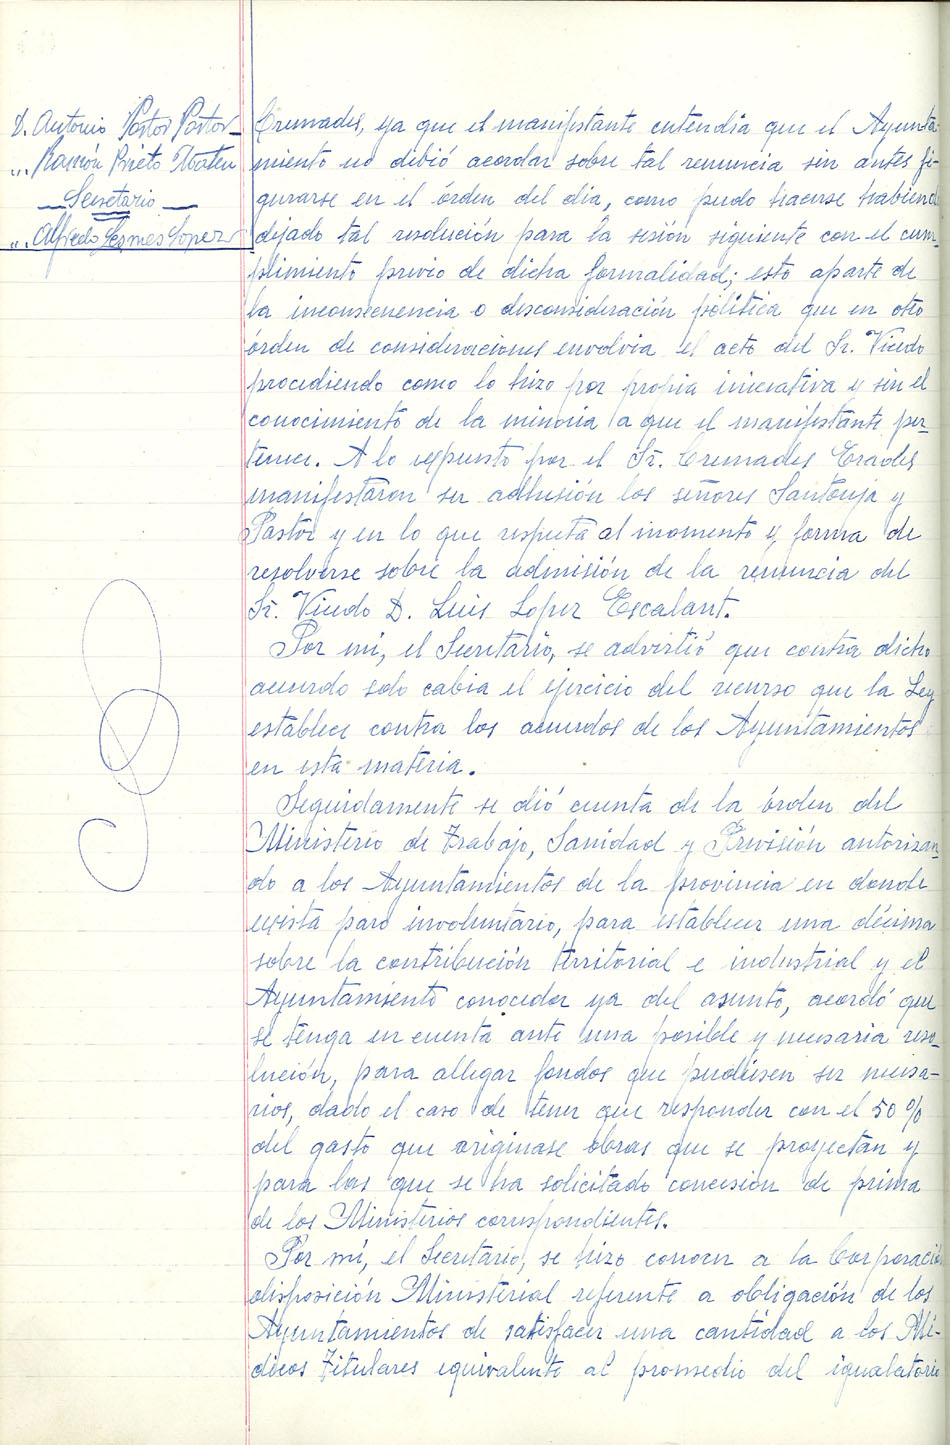 D. Antonio Pastor Pastor
„. Ramón Prieto
Secretario
„. Alfredo Lesmes Lopez
Cremades, ya que el manifestante entendia que el Ayunta-
miento no debió acordar sobre tal renuncia sin antes fi-
gurarse en el órden del dia, como pudo hacerse habiendo
dejado tal resolución para la sesión siguiente con el cum-
plimiento previo de dicha formalidad; esto aparte de
la inconsecuencia o desconsideración política que en otro
órden de consideraciones envolvia el acto del Sr. Vicedo
procediendo como lo hizo por propia iniciativa y sin el
conocimiento de la minoria a que el manifestante per-
tenece. A lo expuesto por el Sr. Cremades Erades
manifestaron su adhesión los señores Santonja y
Pastor y en lo que respecta al momento y forma de
resolverse sobre la admisión de la renuncia del
Sr. Vicedo D. Luis Lopez Escalant.
Por mi, el Secretario, se advirtió que contra dicho
acuerdo solo cabia el ejercicio del recurso que la Ley
establece contra los acuerdos de los Ayuntamientos
en esta materia.
Seguidamente se dió cuenta de la órden del
Ministerio de Trabajo, Sanidad y Previsión autorizan-
do a los Ayuntamientos de la provincia en donde
exista paro involuntario, para establecer una décima
sobre la contribución territorial e industrial y el
Ayuntamiento conocedor ya del asunto, acordó que
se tenga en cuenta ante una posible y necesaria reso-
lución, para allegar fondos que pudiesen ser necesa-
rios, dado el caso de tener que responder con el 50 %
del gasto que originase obras que se proyectan y
para las que se ha solicitado concesión de prima
de los Ministerios correspondientes.
Por mi, el Secretario, se hizo conocer a la Corporación
disposición Ministerial referente a obligación de los
Ayuntamientos de satisfacer una cantidad a los Mé-
dicos Titulares equivalente al promedio del igualatorio